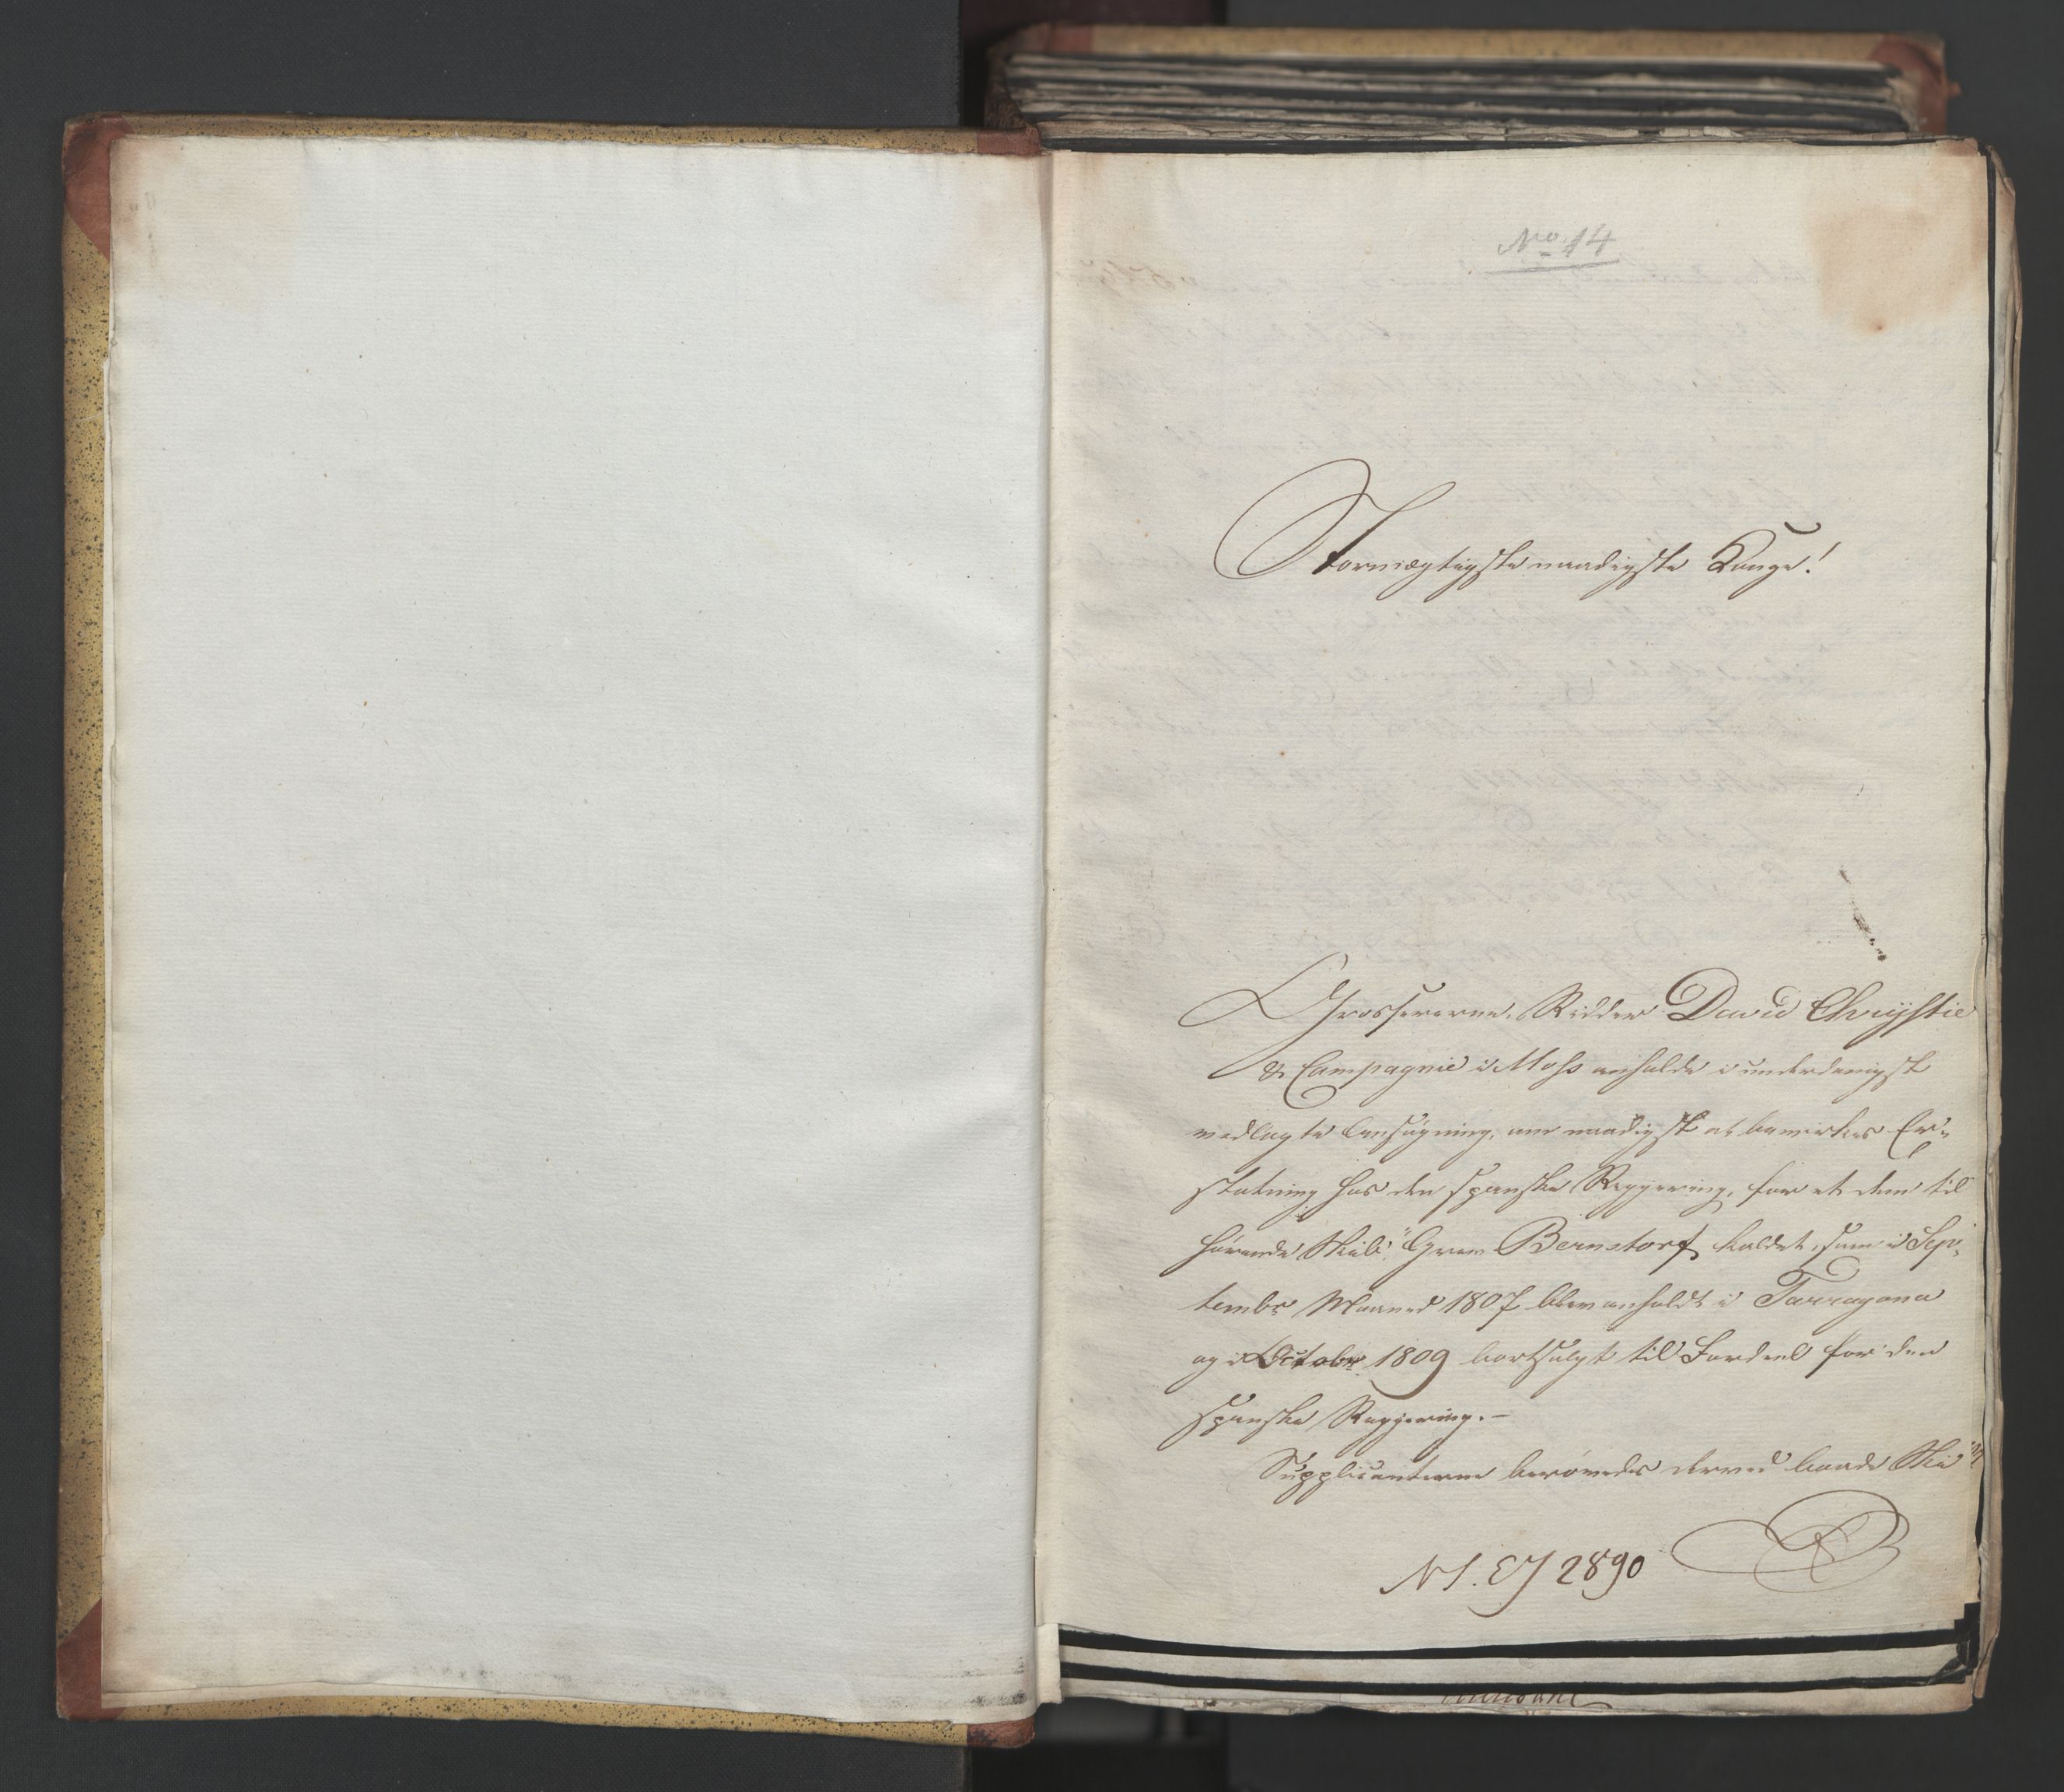 No 14
Stormægtigste naadigste Konge!
Grossererne, Ridder David Chrystie
& Compagnie i Moss anholde i underdanigst
vedlagte Ansøgning, om naadigst at bevirkes Er-
statning hos den spanske Regjering, for et dem til
hørende Skib "Grev Bernstorf" kaldet, som i Sep-
tembr Maaned 1807 blev anholdt i Tarragona
og i Octobr 1809 bortsolgt til Fordeel for den
spanske Regjering.-
Supplicanterne berøvedes derved baade Ski
NI. EJ 2890